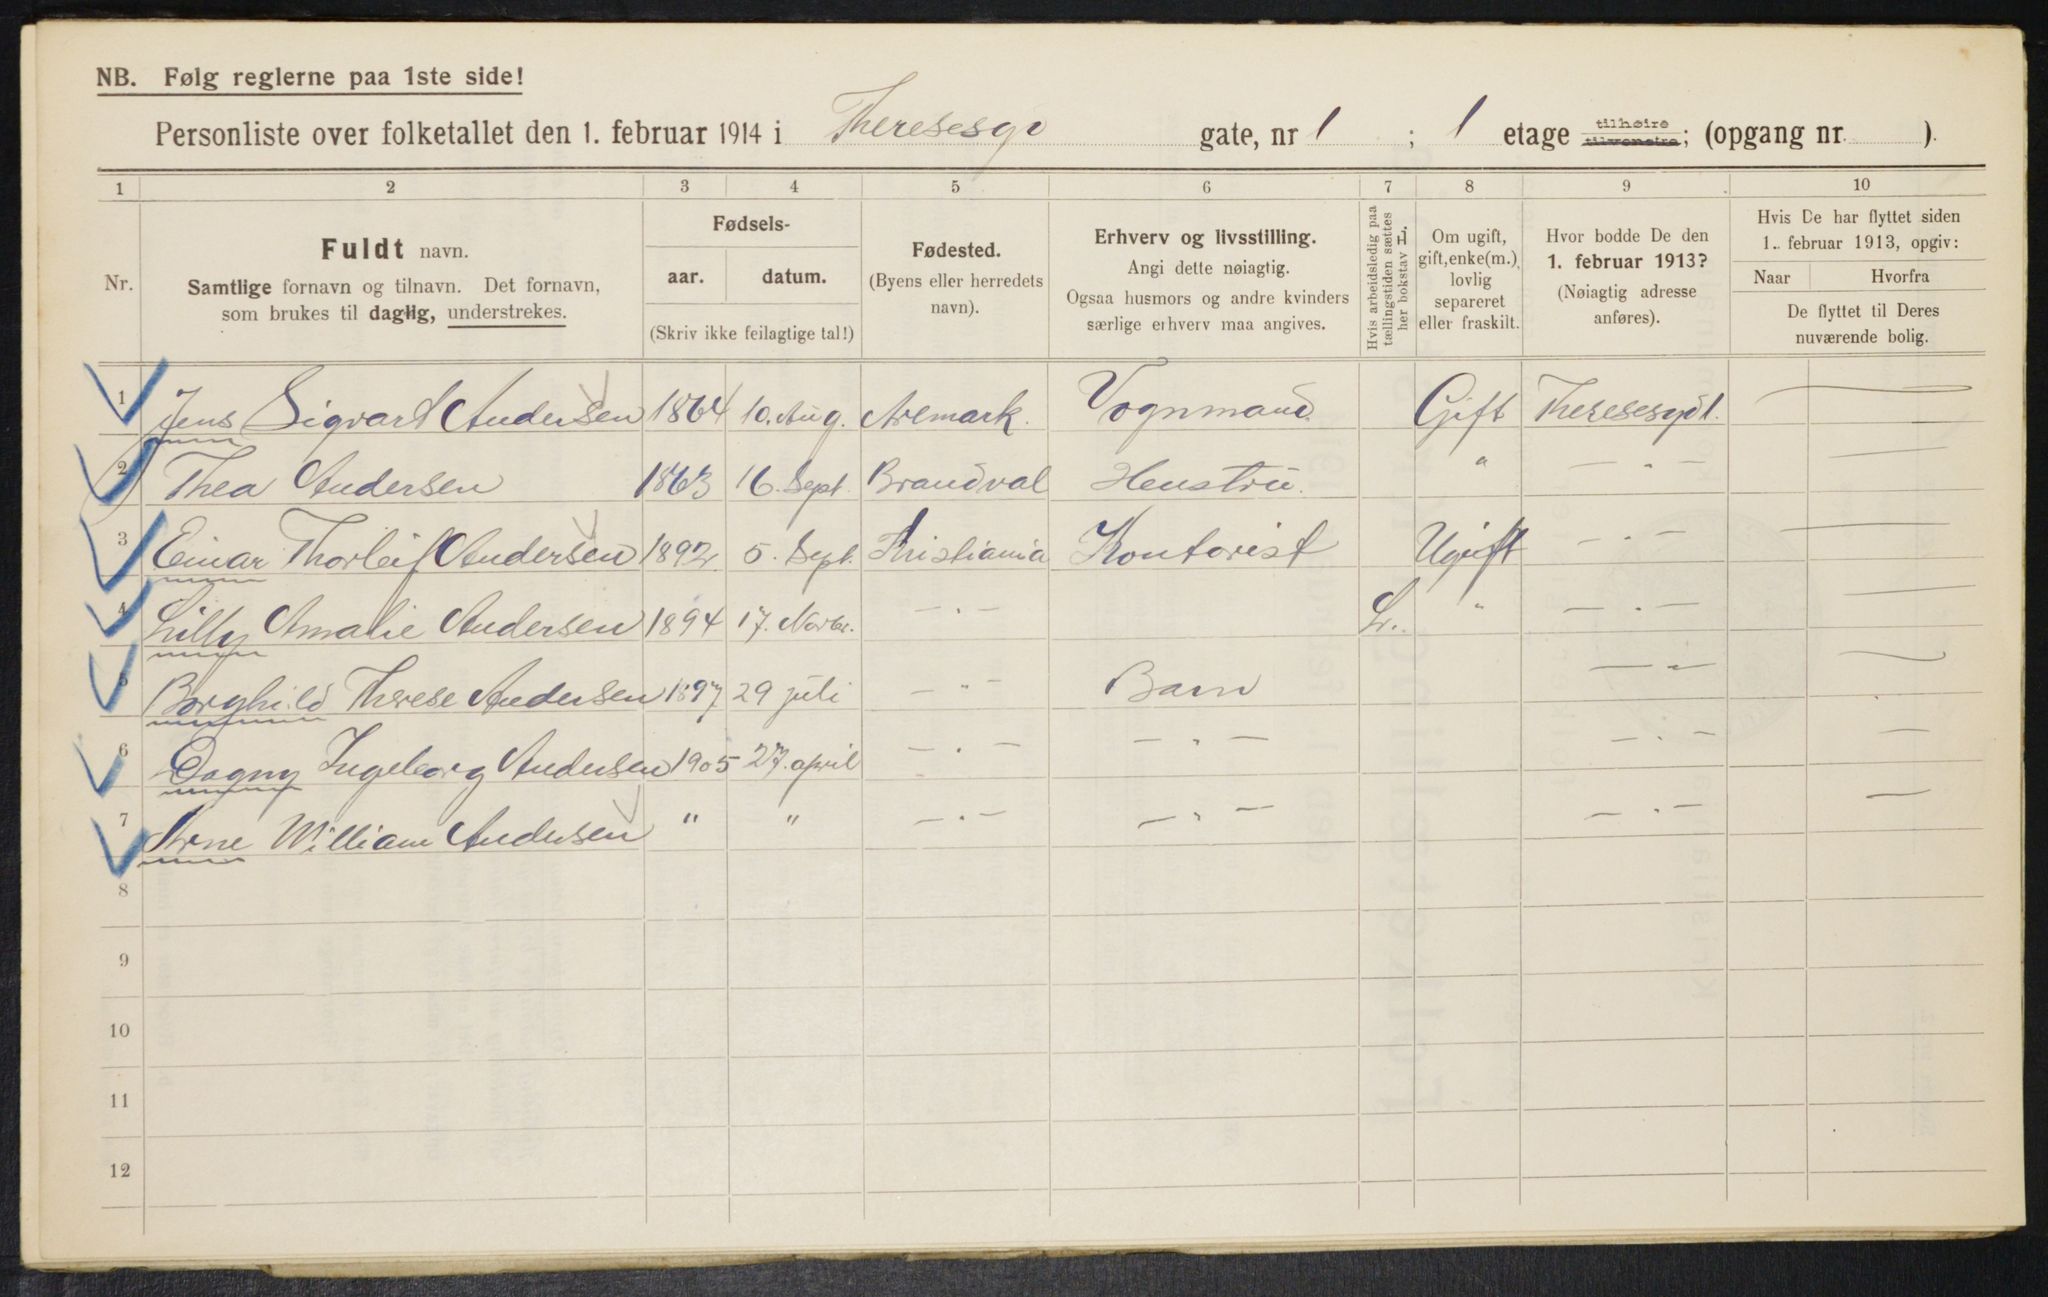 NB. Følg reglerne paa 1ste side!
Personliste over folketallet den 1. februar 1914 i Theresesgd gate, nr 1 ; 1 etage tilhøire tilvenstre; (opgang nr. ).
1 2 3 4 5 6 7 8 9 10
Nr.
Fuldt navn.
Samtlige fornavn og tilnavn. Det fornavn,
som brukes til daglig, understrekes.
Fødsels-
aar. datum.
(Skriv ikke feilagtige tal!)
Fødested.
(Byens eller herredets
navn).
Erhverv og livsstilling.
Angi dette nøiagtig.
Ogsaa husmors og andre kvinders
særlige erhverv maa angives.
Hvis arbeidsledig paa
tællingstiden sættes
her bokstav L.
Om ugift,
gift, enke(m.),
lovlig
separeret
eller fraskilt.
Hvor bodde De den
1. februar 1913?
(Nøiagtig adresse
anføres).
Hvis De har flyttet siden
1. februar 1913, opgiv:
Naar Hvorfra
De flyttet til Deres
nuværende bolig.
1 Jens Sigvart Andersen 1864 10. Aug. Aremark. Vognmand. Gift Theresesgd 1. — —
2 Thea Andersen 1863 16. Sept. Brandval Hustru. " — " — —
3 Einar Thorleif Andersen 1892. 5. Sept. Kristiania Kontorist Ugift — " — —
4 Lilly Amalie Andersen 1894 17. Novbr. — " — L. " — " — —
5 Borghild Therese Andersen 1897 29 juli — " — Barn — " — —
6 Dagny Ingeborg Andersen 1905 27. april — " — — " — — " — —
7 Arne William Andersen " " — " — — " — — " — —
8
9
10
11
12